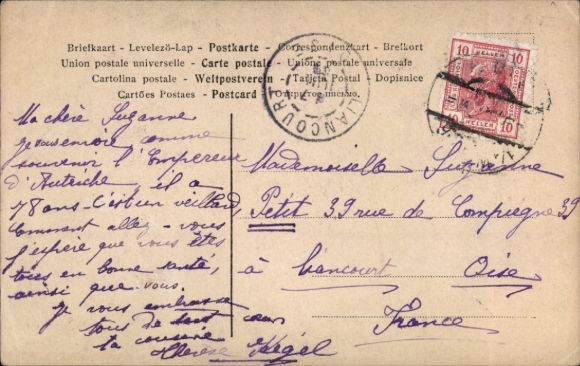 Briefkaart - Levelező-Lap - Postkarte - Correspondenzkart - Brefkort
Union postale universelle - Carte postale - Unione postale universale
Cartolina postale - Weltpostverein - Tarjeta Postal - Dopisnice
Cartões Postaes - Postcard - Открытое письмо.
LIANCOURT
10 10
HELLER
10 HELLER 10
Ma chère Suzanne
je vous envoie comme
souvenir l'Empereur
d'Autriche, il a
78 ans. C'est un veillard,
Comment allez-vous
j'espère que vous êtes
tous en bonne santé,
ainsi que vous.
Je vous embrasse
tous de tout cœur
ta cousine
Thérèse Kegel
Mademoiselle Suzanne
Petit 39 rue de Compiegne 39
à Liancourt Oise
France